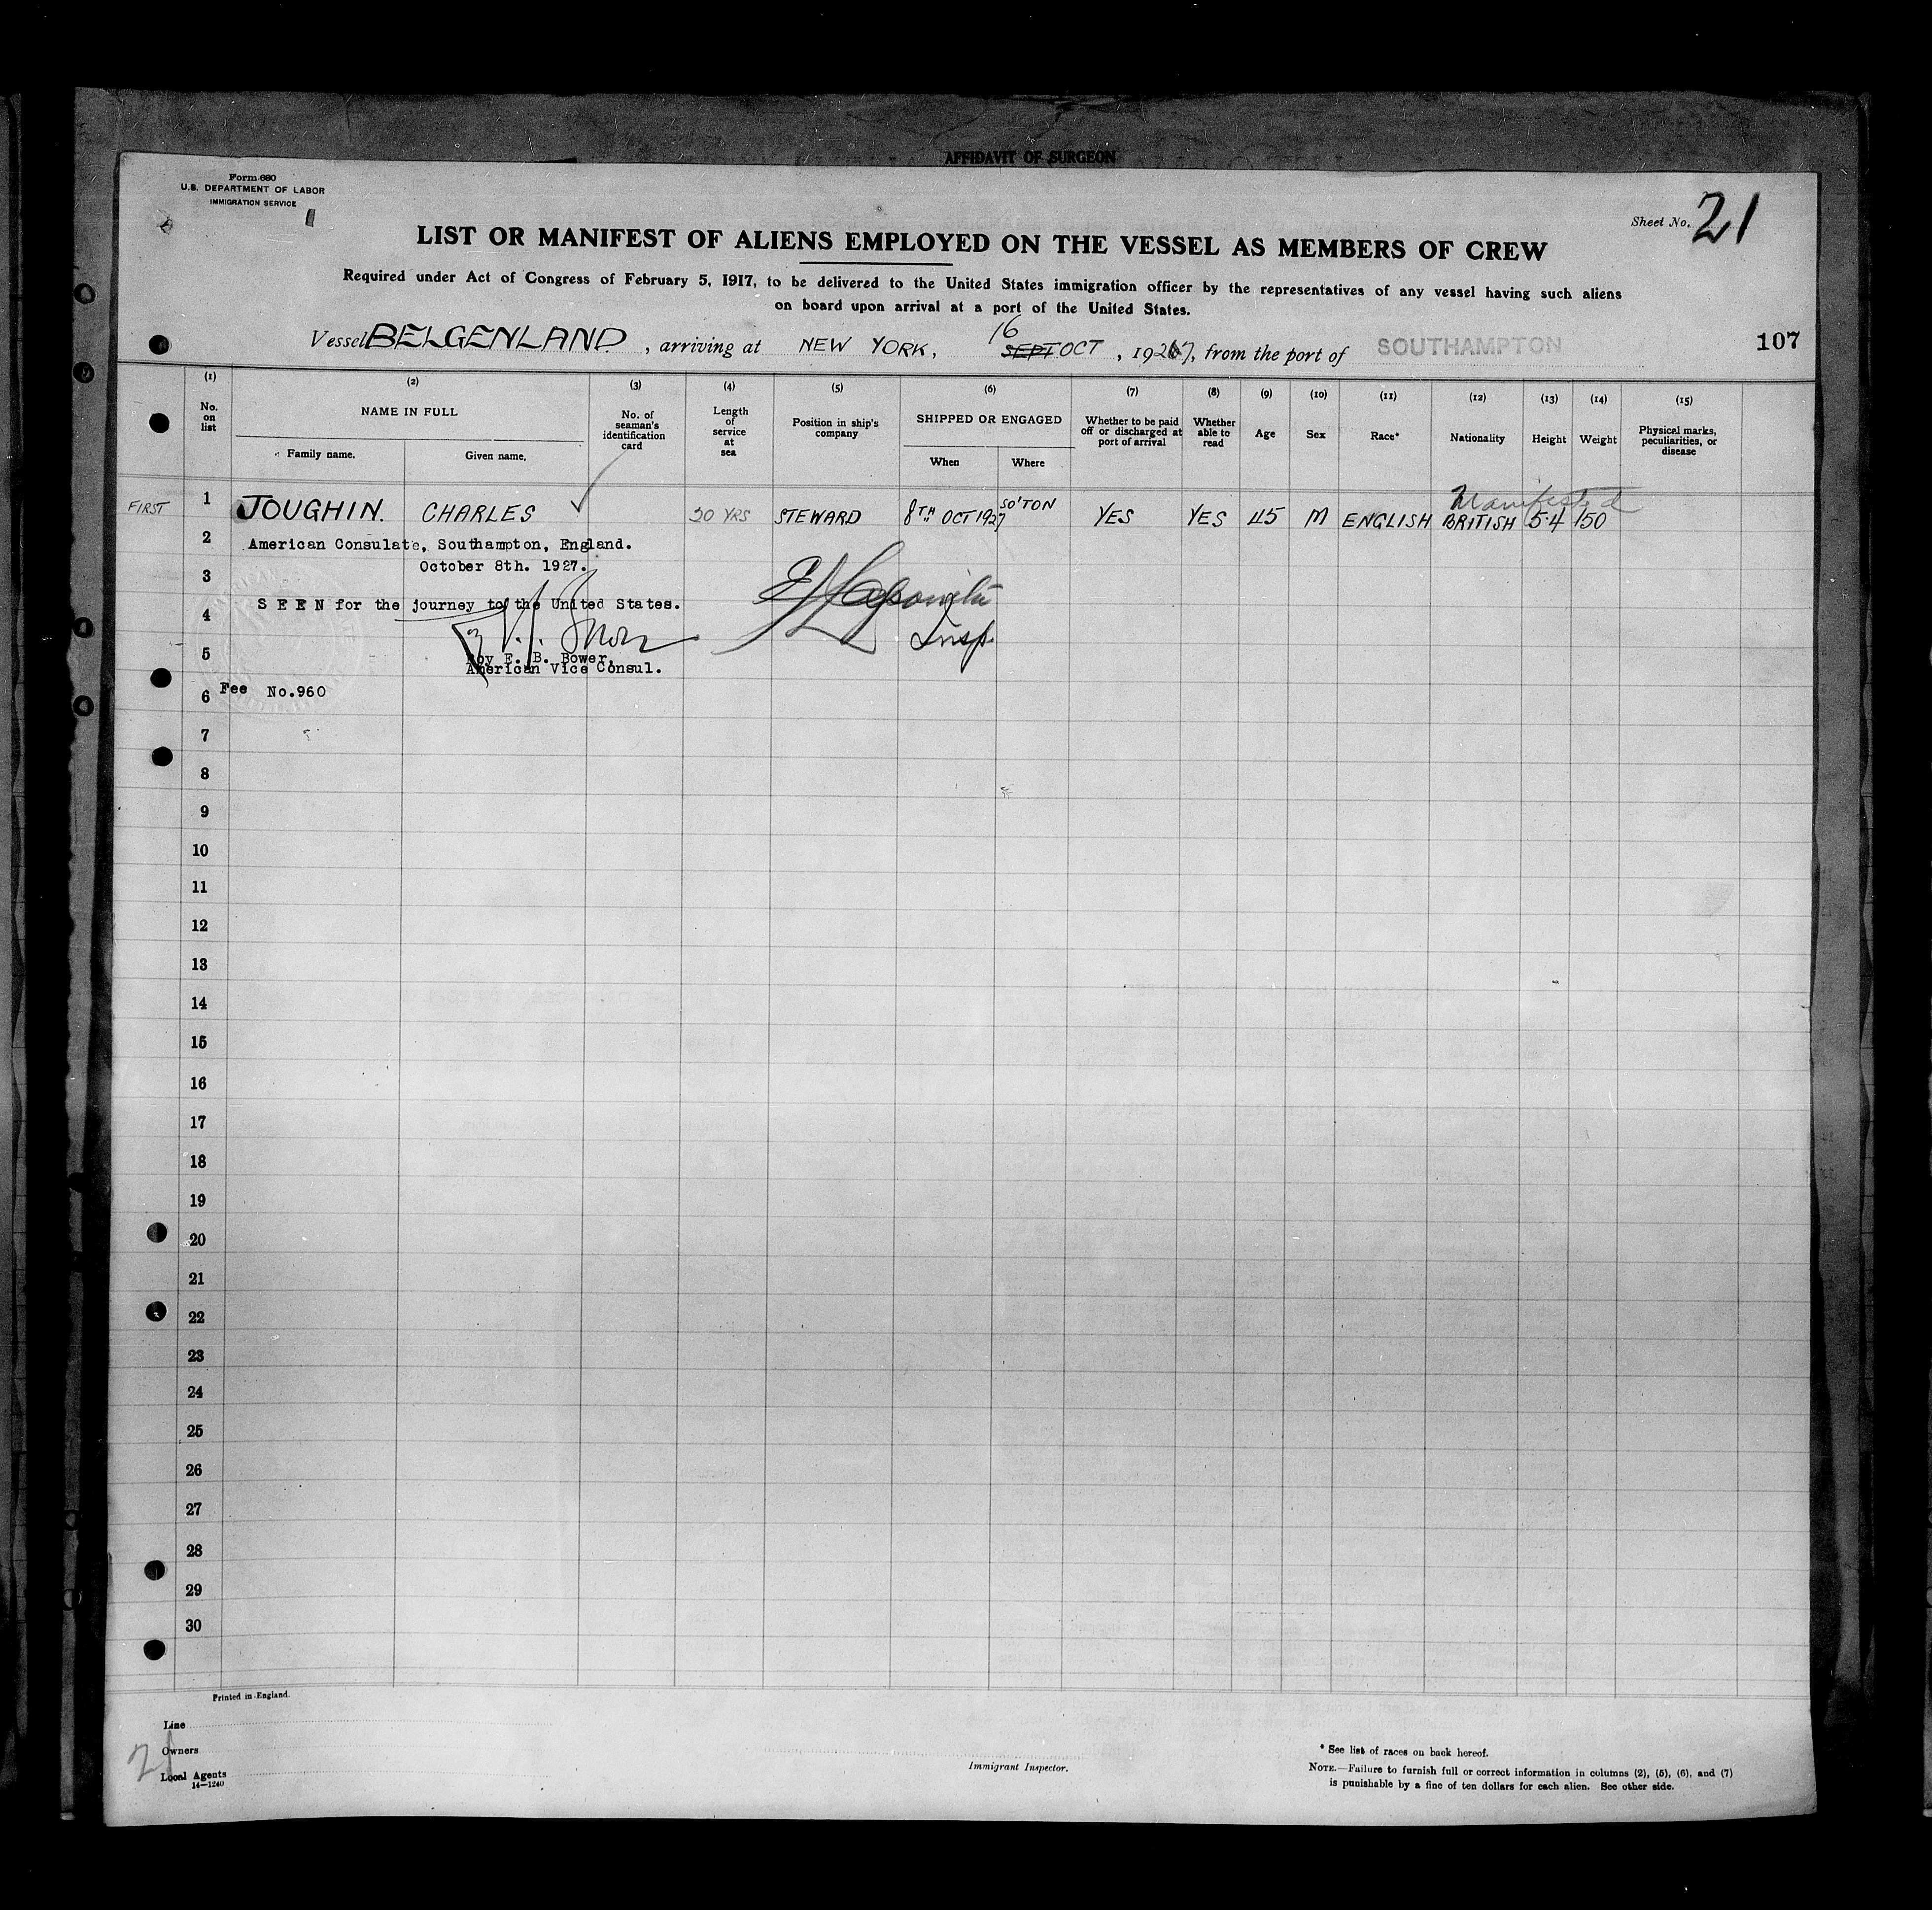 AFFIDAVIT OF SURGEON
Form 680
U.S. DEPARTMENT OF LABOR
IMMIGRATION SERVICE
Sheet No. 21
LIST OR MANIFEST OF ALIENS EMPLOYED ON THE VESSEL AS MEMBERS OF CREW
Required under Act of Congress of February 5, 1917, to be delivered to the United States immigration officer by the representatives of any vessel having such aliens
on board upon arrival at a port of the United States.
16
Vessel BELGENLAND, arriving at NEW YORK, SEPT OCT, 1927, from the port of SOUTHAMPTON 107
(1) (2) (3) (4) (5) (6) (7) (8) (9) (10) (11) (12) (13) (14) (15)
No. on list
NAME IN FULL
Family name. Given name.
No. of seaman's identification card
Length of service at sea
Position in ship's company
SHIPPED OR ENGAGED
When Where
Whether to be paid off or discharged at port of arrival
Whether able to read
Age
Sex
Race*
Nationality
Height
Weight
Physical marks, peculiarities, or disease
Manifested
FIRST 1 JOUGHIN. CHARLES ✓ 20 YRS STEWARD 8TH OCT 1927 SO'TON YES YES 45 M ENGLISH BRITISH 5·4 150
2 American Consulate, Southampton, England.
October 8th. 1927.
3
4 S E E N for the journey to the United States.
Insp.
5 Roy E. B. Bower,
American Vice Consul.
6 Fee No.960
7
8
9
10
11
12
13
14
15
16
17
18
19
20
21
22
23
24
25
26
27
28
29
30
Printed in England.
Line
Owners
21
Local Agents
14—1240
Immigrant Inspector.
* See list of races on back hereof.
NOTE.—Failure to furnish full or correct information in columns (2), (5), (6), and (7)
is punishable by a fine of ten dollars for each alien. See other side.